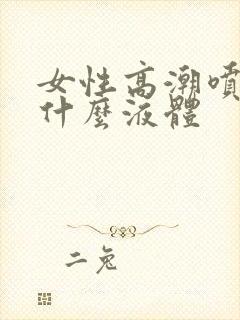 女性高潮噴
什麼液體
二兔